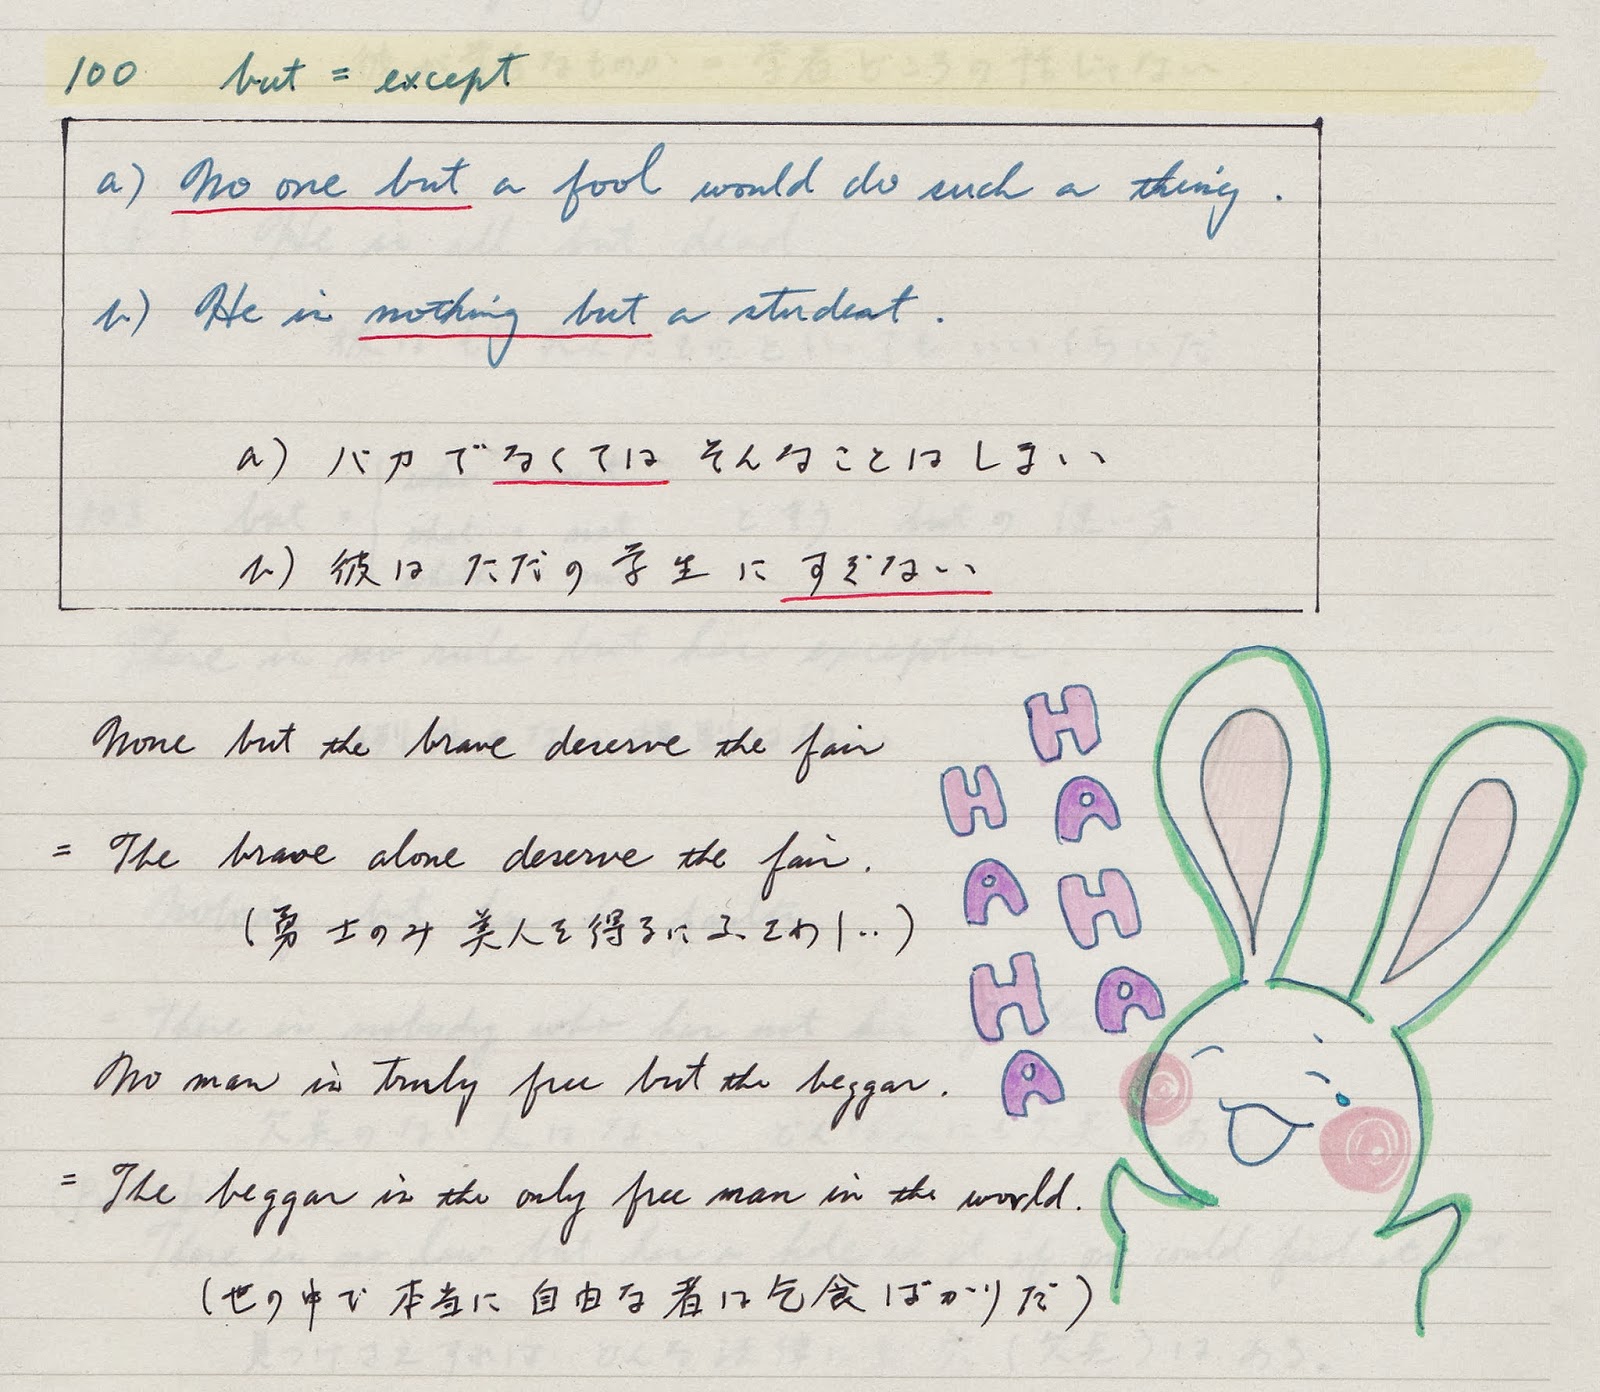 100 but = except
a) No one but a fool would do such a thing.
b) He is nothing but a student.
a) バカでなくてはそんなことはしまい
b) 彼はただの学生にすぎない
None but the brave deserve the fair
= The brave alone deserve the fair.
(勇士のみ美人を得るにふさわしい)
No man is truly free but the beggar.
= The beggar is the only free man in the world.
(世の中で本当に自由な者は乞食ばかりだ)
HAHA
HAHA